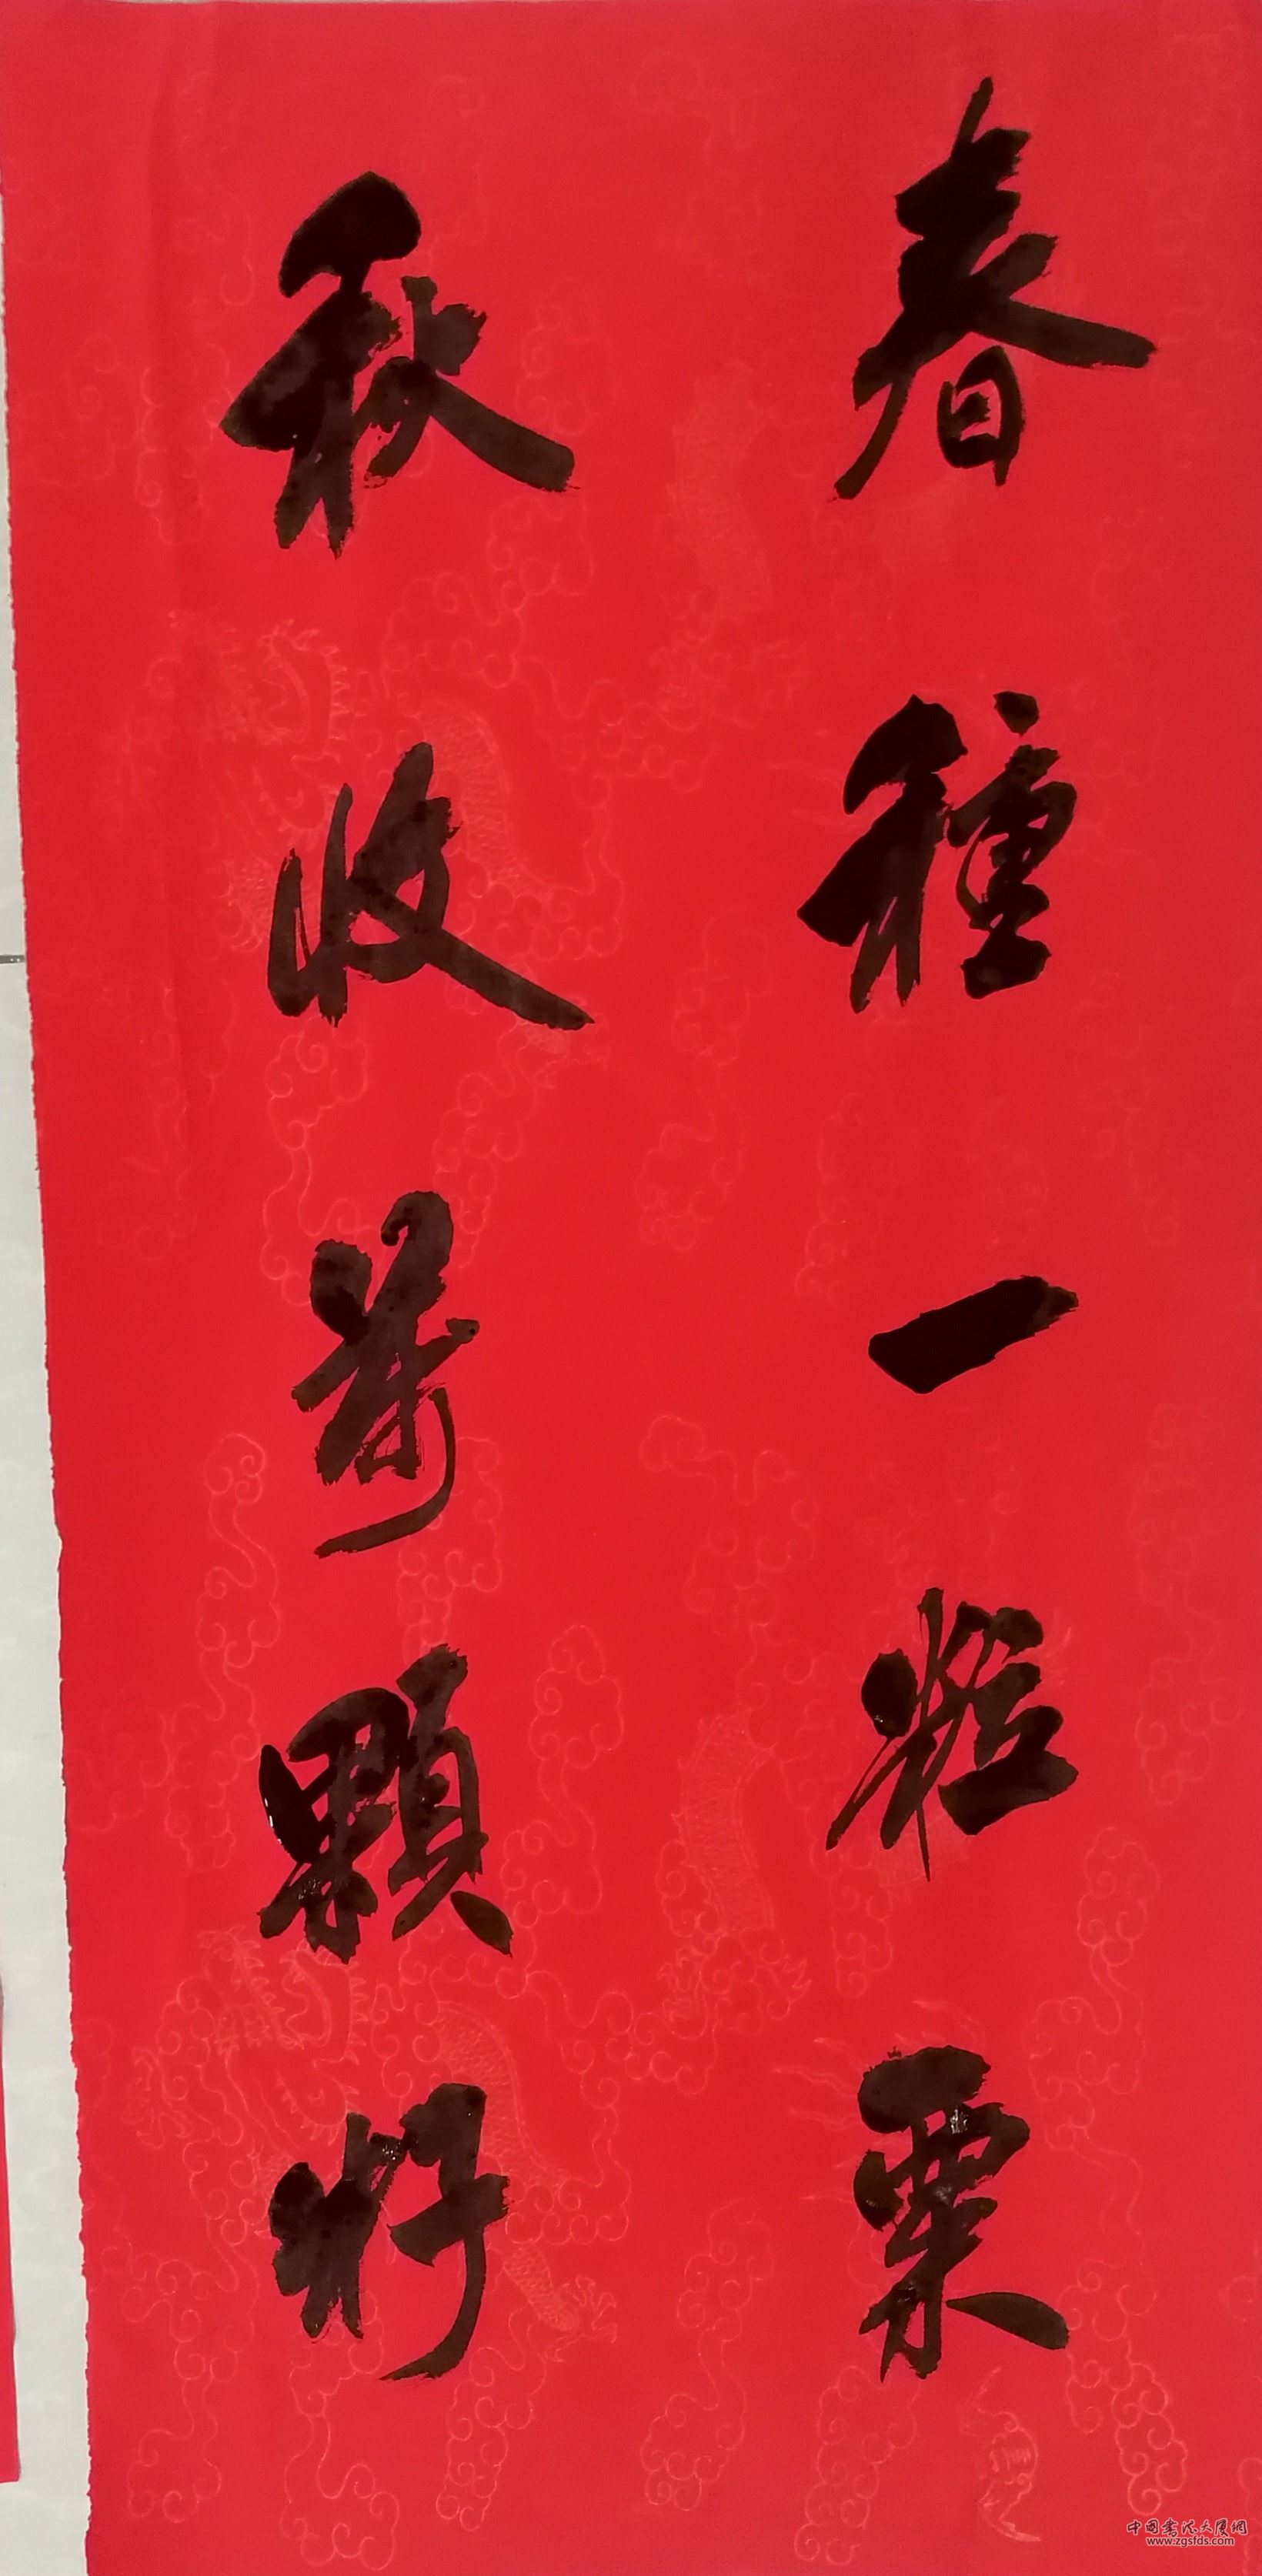 春種一粒粟
秋收萬顆籽
中国书法大厦网
www.zgsfds.com